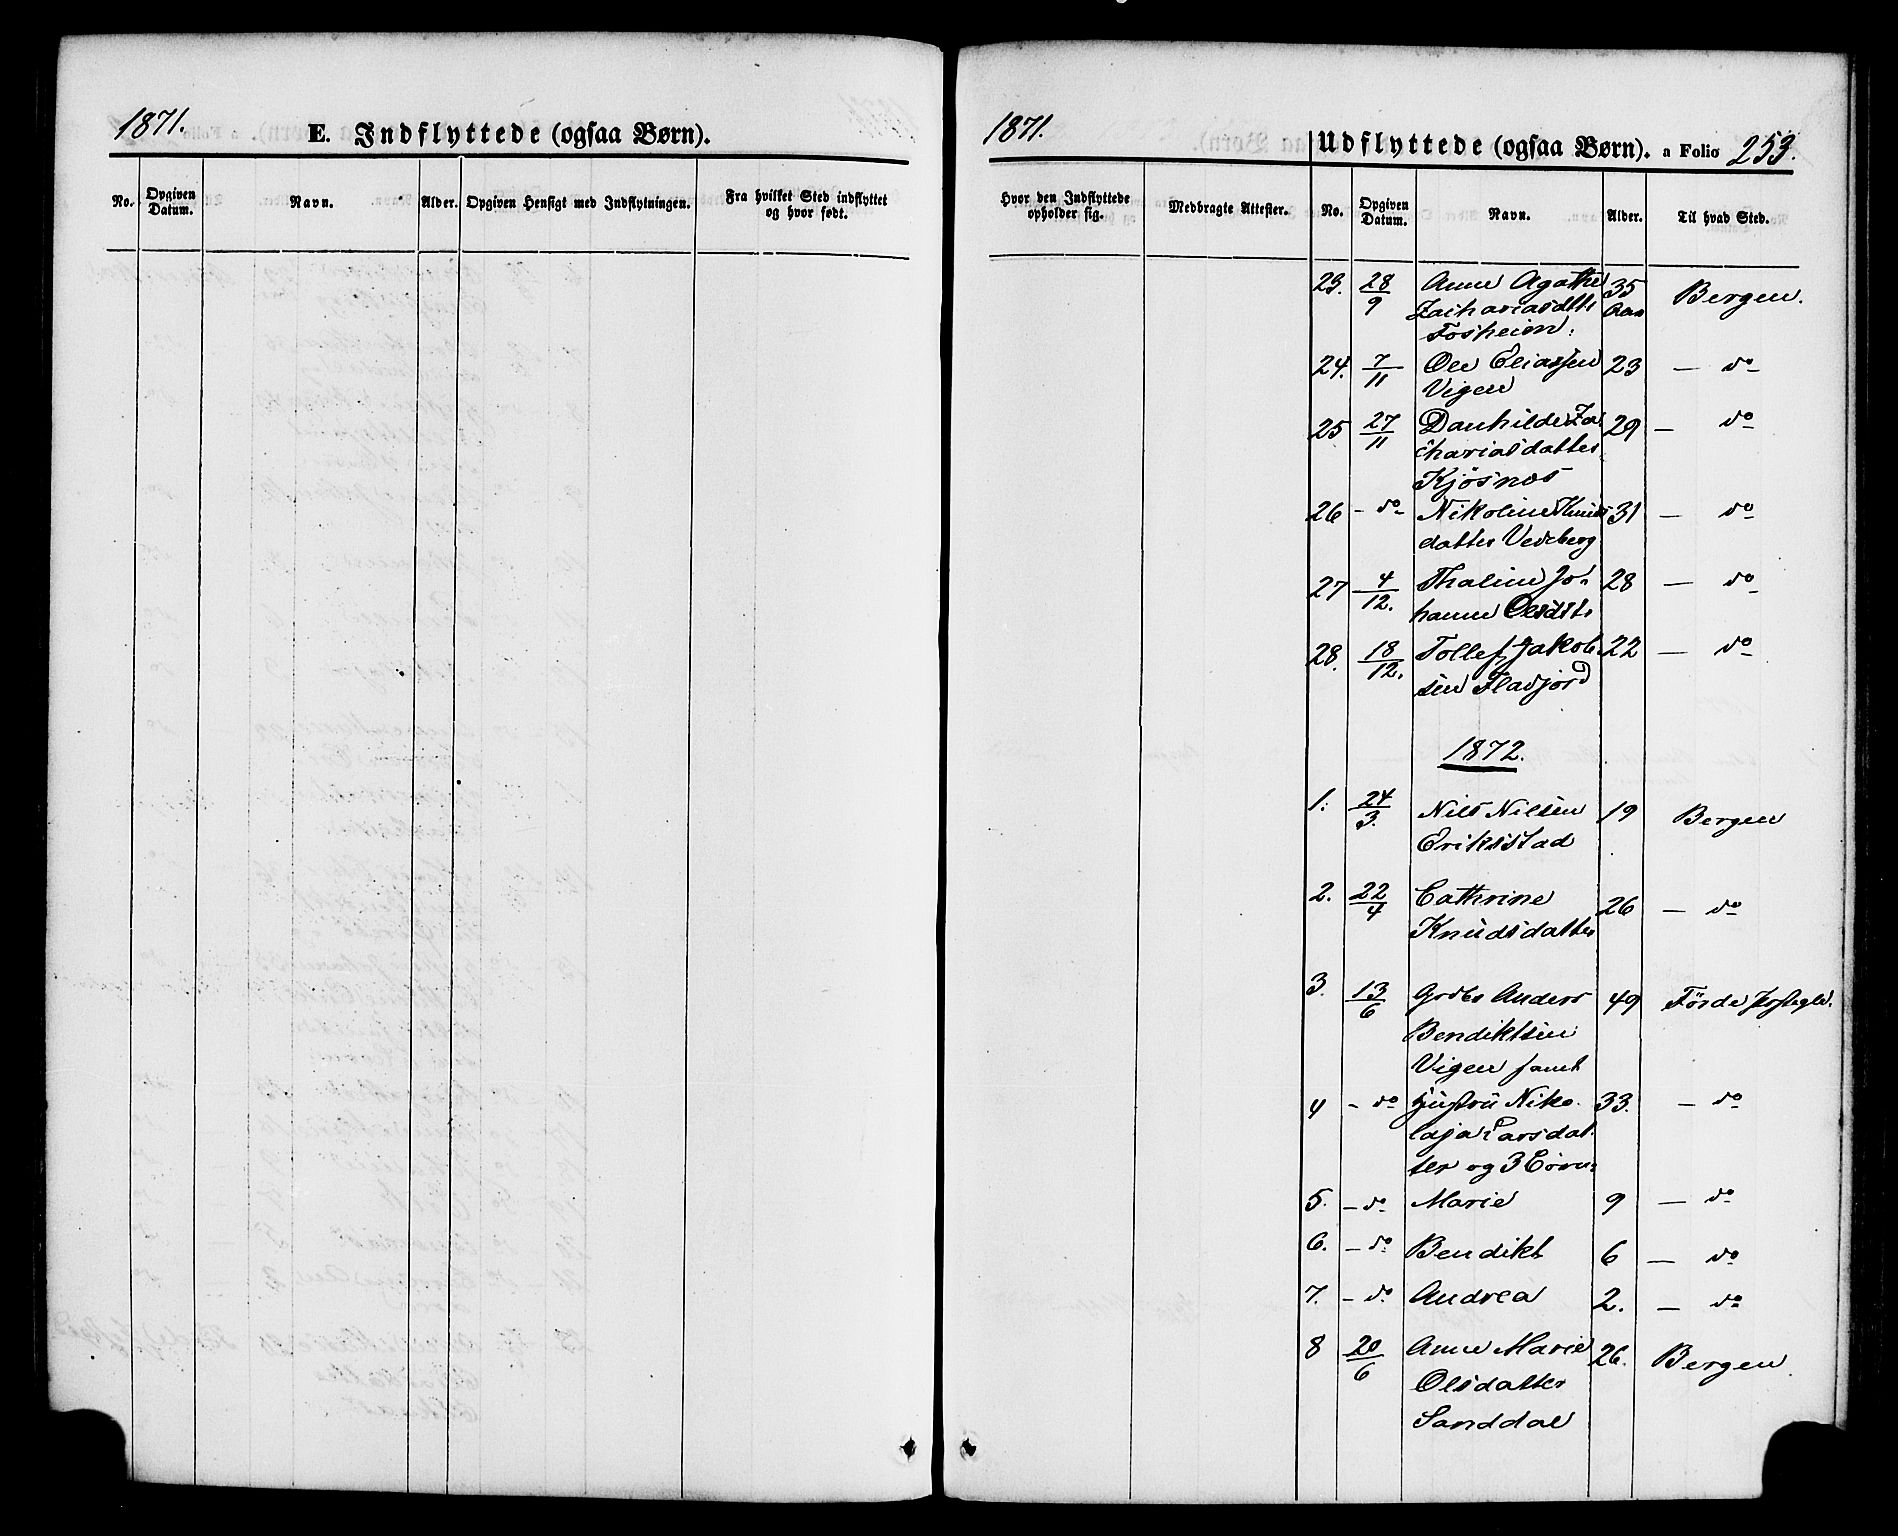 1871.
E. Indflyttede (ogsaa Børn).
No.
Opgiven
Datum.
Navn.
Alder.
Opgiven Hensigt med Indflytningen.
Fra hvilket Sted indflyttet
og hvor født.
1871.
Udflyttede (ogsaa Børn). a Folio 253.
Hvor den Indflyttede
opholder sig.
Medbragte Attester.
No.
Opgiven
Datum.
Navn.
Alder.
Til hvad Sted.
23. 28/9 Anne Agathe 35 Bergen.
Zachariasdtr Aar
Fosheim.
24. 7/11 Ole Eliassen 23 — do
Vigen
25 27/11 Danhilde Za 29 — do
chariasdatter
Kjösnes
26 - do Nikoline Knuds 31 — do
datter Vedeberg
27 4/12. Thaline Jo- 28 — do
hanne Olsdtr
28. 18/12. Tollef Jakob 22 — do
sen Fladjord
1872.
1. 24/3. Nils Nilsen 19 Bergen
Eriksstad
2. 22/4 Cathrine 26 — do
Knudsdatter
3. 13/6 Anders 49 Förde
Bendiktsen
Vigen samt
4 - do Hustru Niko- 33. — do
laja Larsdat
ter og 3 Börn:
5. - do Marie 9 — do
6. - do Bendikt 6 — do
7. - do Andrea 2. — do
8 20/6 Anne Marie 26. Bergen
Olsdatter
Sanddal